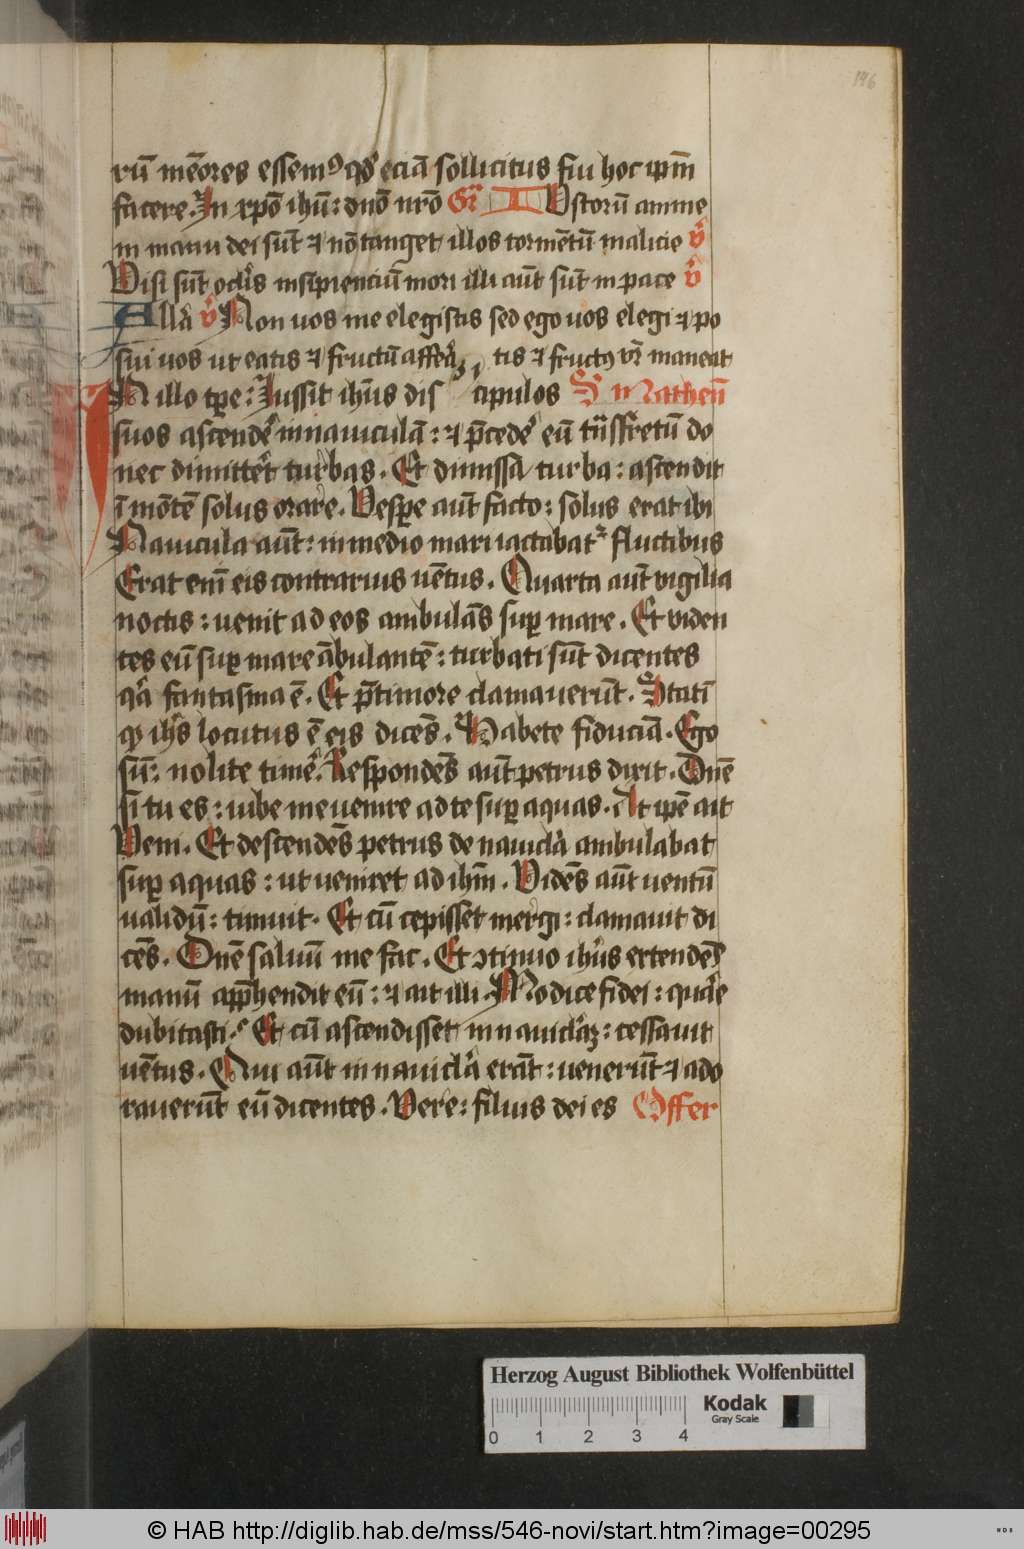 146
rū mēores essemꝰ qd̄ eciā sollicitus fui hoc ipm̄
facere. In xp̄o ihū: dnō nr̄o Gr̄ IVstorū anime
in manu dei sūt ⁊ nō tanget illos tormētū malicie v̄
Visi sūt ocl̓is insipienciū mori illi aūt sūt in pace v̄
Allā v̄ Non uos me elegistis sed ego uos elegi ⁊ po
sui uos ut eatis ⁊ fructū affera tis ⁊ fructꝰ vr̄ maneat
N illo tpe: Jussit ihūs dis cipulos S Matheū
suos ascendē in nauiculā: ⁊ p̄cedē eū tn̄s fretū do
nec dimittēt turbas. Et dimissa turba: ascendit
ī mōtē solus orare. Vespe aūt facto: solus erat ibi
Nauicula aūt: in medio mari iactabat᷑ fluctibus
Erat em̄ eis contrarius uētus. Quarta aūt vigilia
noctis: uenit ad eos ambulās suꝑ mare. Et viden
tes eū suꝑ mare ābulantē: turbati sūt dicentes
qa̓ fantasma ē. Et p̄ timore clamauerūt. Statī
qꝫ ihs̄ locutus ē eis dicēs. Habete fiduciā. Ego
sū: nolite timē. Respondēs aūt petrus dixit. Dn̄e
si tu es: iube me uenire ad te suꝑ aquas. At ipē ait
Veni. Et descendēs petrus de nauicl̓a ambulabat
suꝑ aquas: ut ueniret ad ihm̄. Vidēs aūt uentū
ualidū: timuit. Et cū cepisset mergi: clamauit di
cēs. Dn̄e saluū me fac. Et ↄtinuo ihūs extendēs
manū app̄hendit eū: ⁊ ait illi. Modice fidei: quāe
dubitasti. Et cū ascendisset in nauicl̓aꝫ: cessauit
uētus. Qui aūt in nauicl̓a erāt: uenerūt ⁊ ado
rauerūt eū dicentes. Vere: filius dei es Offer
Herzog August Bibliothek Wolfenbüttel
Kodak
Gray Scale
0 1 2 3 4
© HAB http://diglib.hab.de/mss/546-novi/start.htm?image=00295